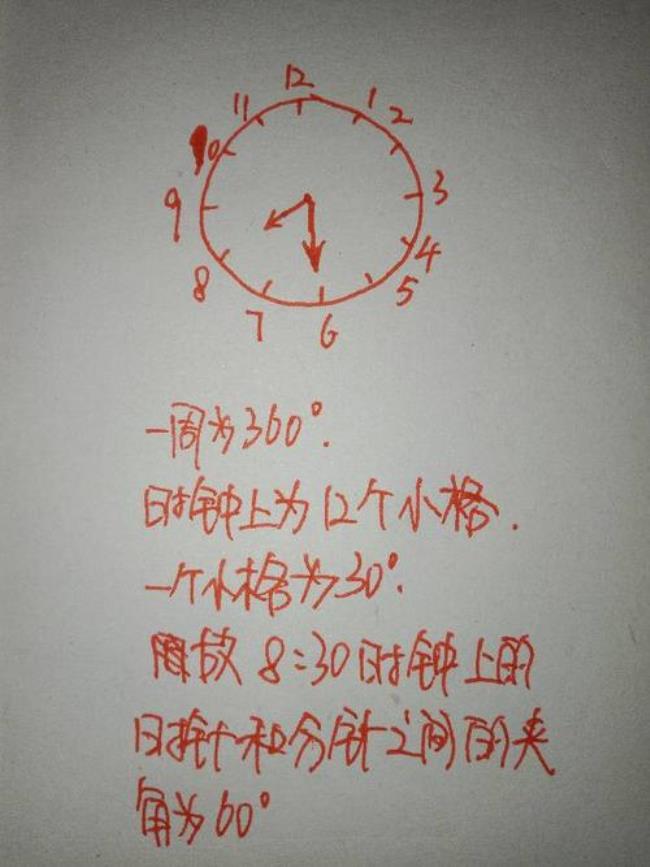 12
11
1
2
10
9
3
8
4
7
5
6
一周为360°.
时钟上为12个小格.
一个小格为30°.
故8:30时钟上的
时针和分针之间的夹
角为60°